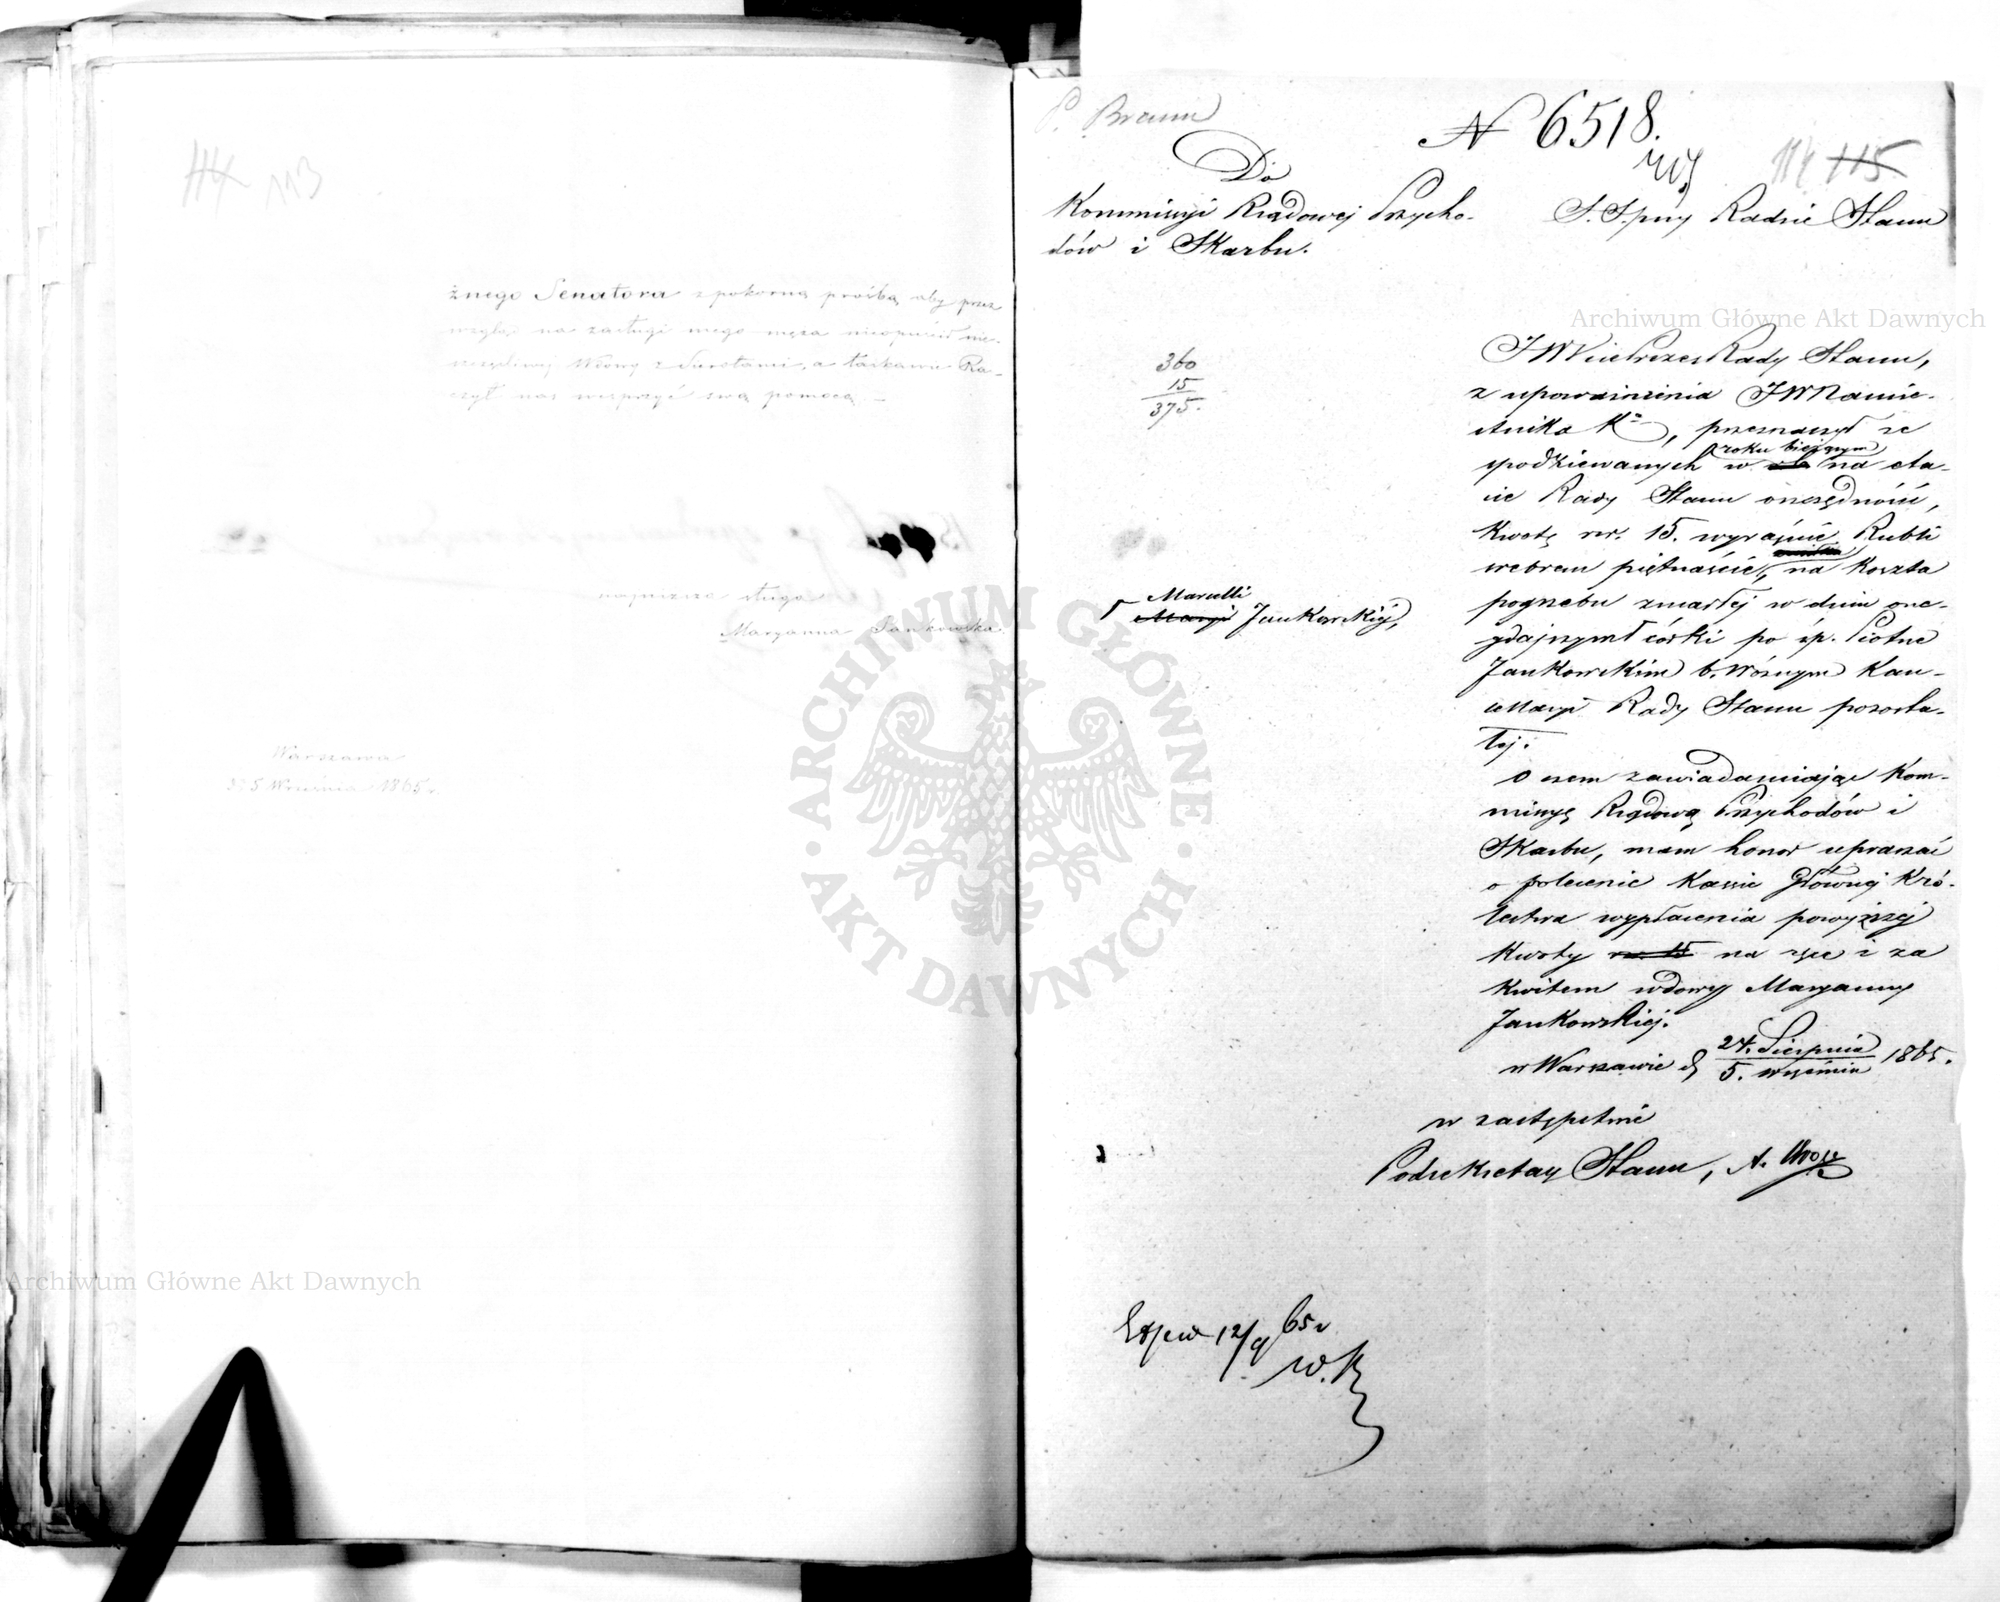 114 113
żnego Senatora z pokorną prośbą aby przez
wzgląd na zasługi mego męża nieopuścił nie-
szczęśliwej Wdowy z Sierotami, a łaskawie Ra-
czył nas wesprzyć swą pomocą. –
najniższa sługa
Maryanna Jankowska
Warszawa
5 Września 1865 r.
P. Braun
N 6518.
114 115
Do
Kommissyi Rządowej Przycho-
dów i Skarbu.
S. S. przy Radzie Stanu
360
15
375.
JW Vice Prezes Rady Stanu,
z upoważnienia JW Namie-
stnika Kr., przeznaczył ze
spodziewanych w roku bieżącym na eta-
cie Rady Stanu oszczędności,
kwotę rsr. 15. wyraźnie Rubli
srebrem piętnaście, na koszta
pogrzebu zmarłej w dniu one-
gdajszym córki po śp. Piotrze
Marcelli
Maryi Jankowskiej,
Jankowskim b. Woźnym Kan-
cellaryi Rady Stanu pozosta-
łej.
O czem zawiadamiając Kom-
missyę Rządową Przychodów i
Skarbu, mam honor upraszać
o polecenie Kassie Głównej Kró-
lestwa wypłacenia powyższej
kwoty rsr. 15 na ręce i za
kwitem wdowy Maryanny
Jankowskiej.
w Warszawie d. 24. Sierpnia
5. Września 1865.
w zastępstwie
Podsekretarz Stanu, A.
12/9 65 r
W. K
Archiwum Główne Akt Dawnych
Archiwum Główne Akt Dawnych
ARCHIWUM GŁÓWNE · AKT DAWNYCH ·